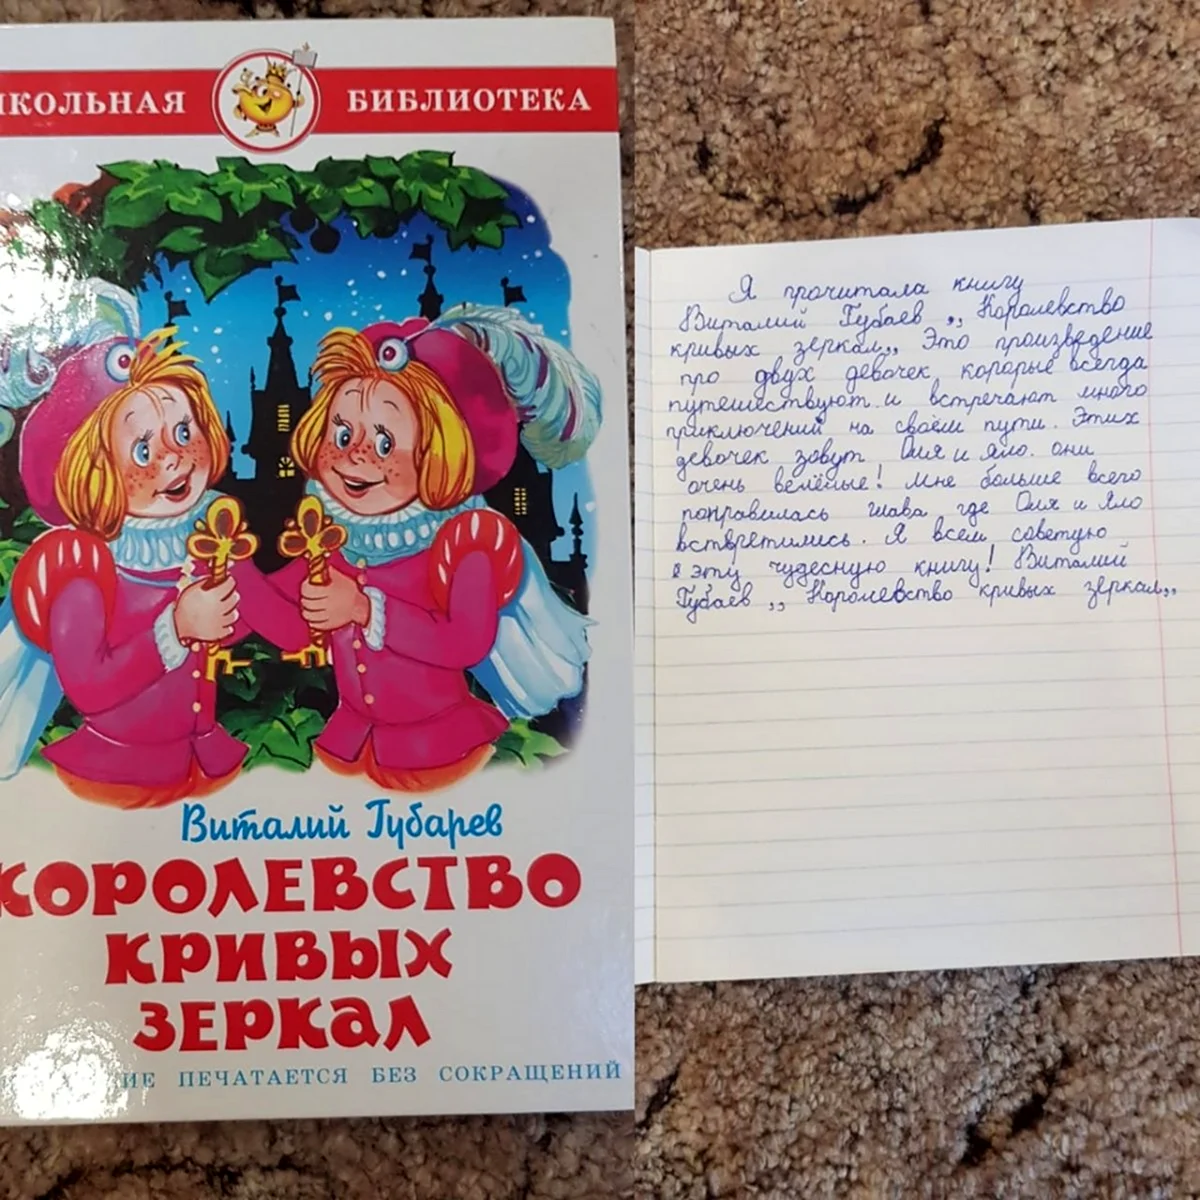 ШКОЛЬНАЯ БИБЛИОТЕКА
Виталий Губарев
КОРОЛЕВСТВО
КРИВЫХ
ЗЕРКАЛ
ИЕ ПЕЧАТАЕТСЯ БЕЗ СОКРАЩЕНИЙ
Я прочитала книгу
Виталий Губаев ,, Королевство
кривых зеркал,, Это произведение
про двух девочек которые всегда
путешествуют и встречают много
приключений на своём пути. Этих
девочек зовут Оля и Яло. они
очень велёлые! Мне больше всего
понравилась глава где Оля и Яло
вствретились. Я всем советую
эту чудесную книгу! Виталий
Губаев ,, Королевство кривых зеркал,,